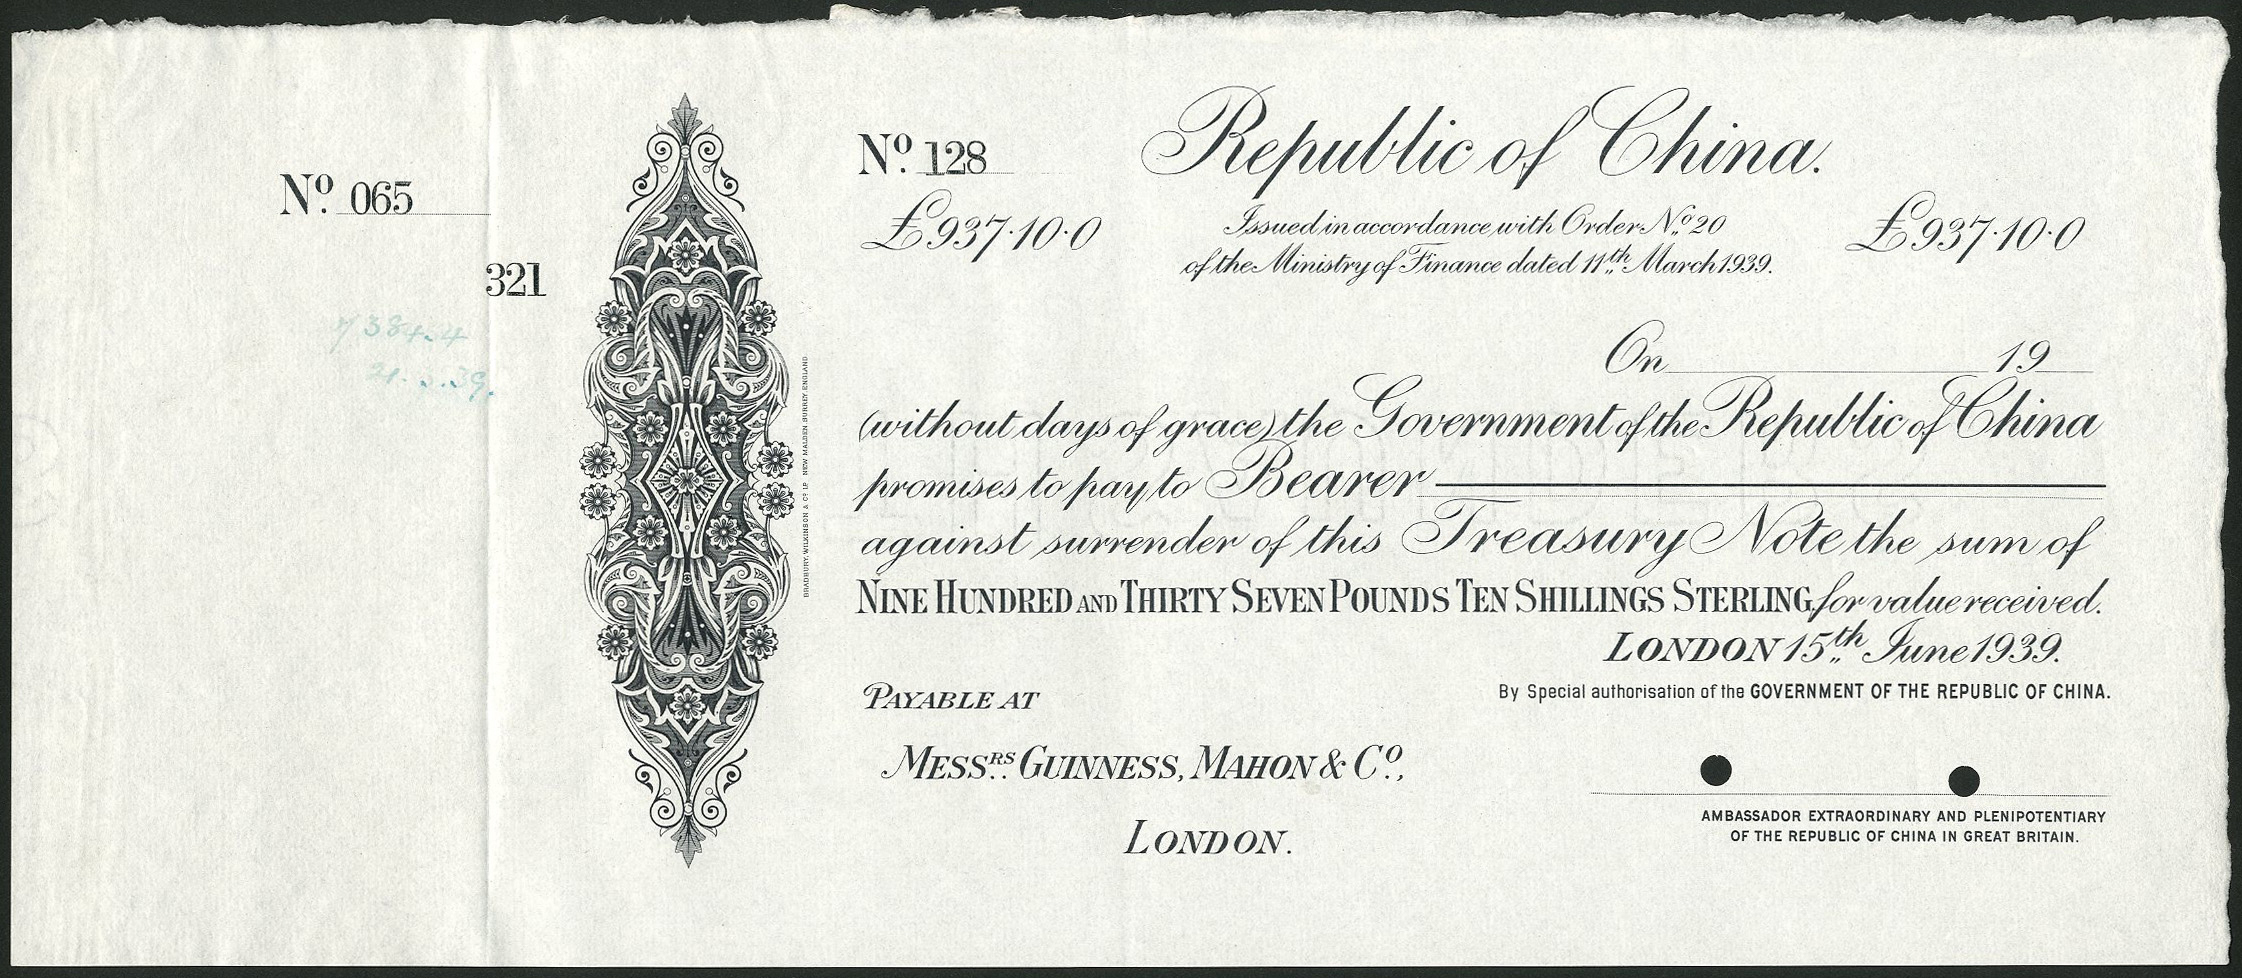 Nº. 065
321
7384-4
Nº. 128
Republic of China.
£937·10·0
Issued in accordance with Order Nº. 20
£937·10·0
of the Ministry of Finance dated 11th March 1939.
On 19
(without days of grace) the Government of the Republic of China
promises to pay to Bearer
against surrender of this Treasury Note the sum of
NINE HUNDRED AND THIRTY SEVEN POUNDS TEN SHILLINGS STERLING, for value received.
LONDON 15th June 1939.
By Special authorisation of the GOVERNMENT OF THE REPUBLIC OF CHINA.
PAYABLE AT
MESSRS. GUINNESS, MAHON & Cº.,
LONDON.
AMBASSADOR EXTRAORDINARY AND PLENIPOTENTIARY
OF THE REPUBLIC OF CHINA IN GREAT BRITAIN.
BRADBURY, WILKINSON & Cº. Lᴰ. NEW MALDEN, SURREY, ENGLAND